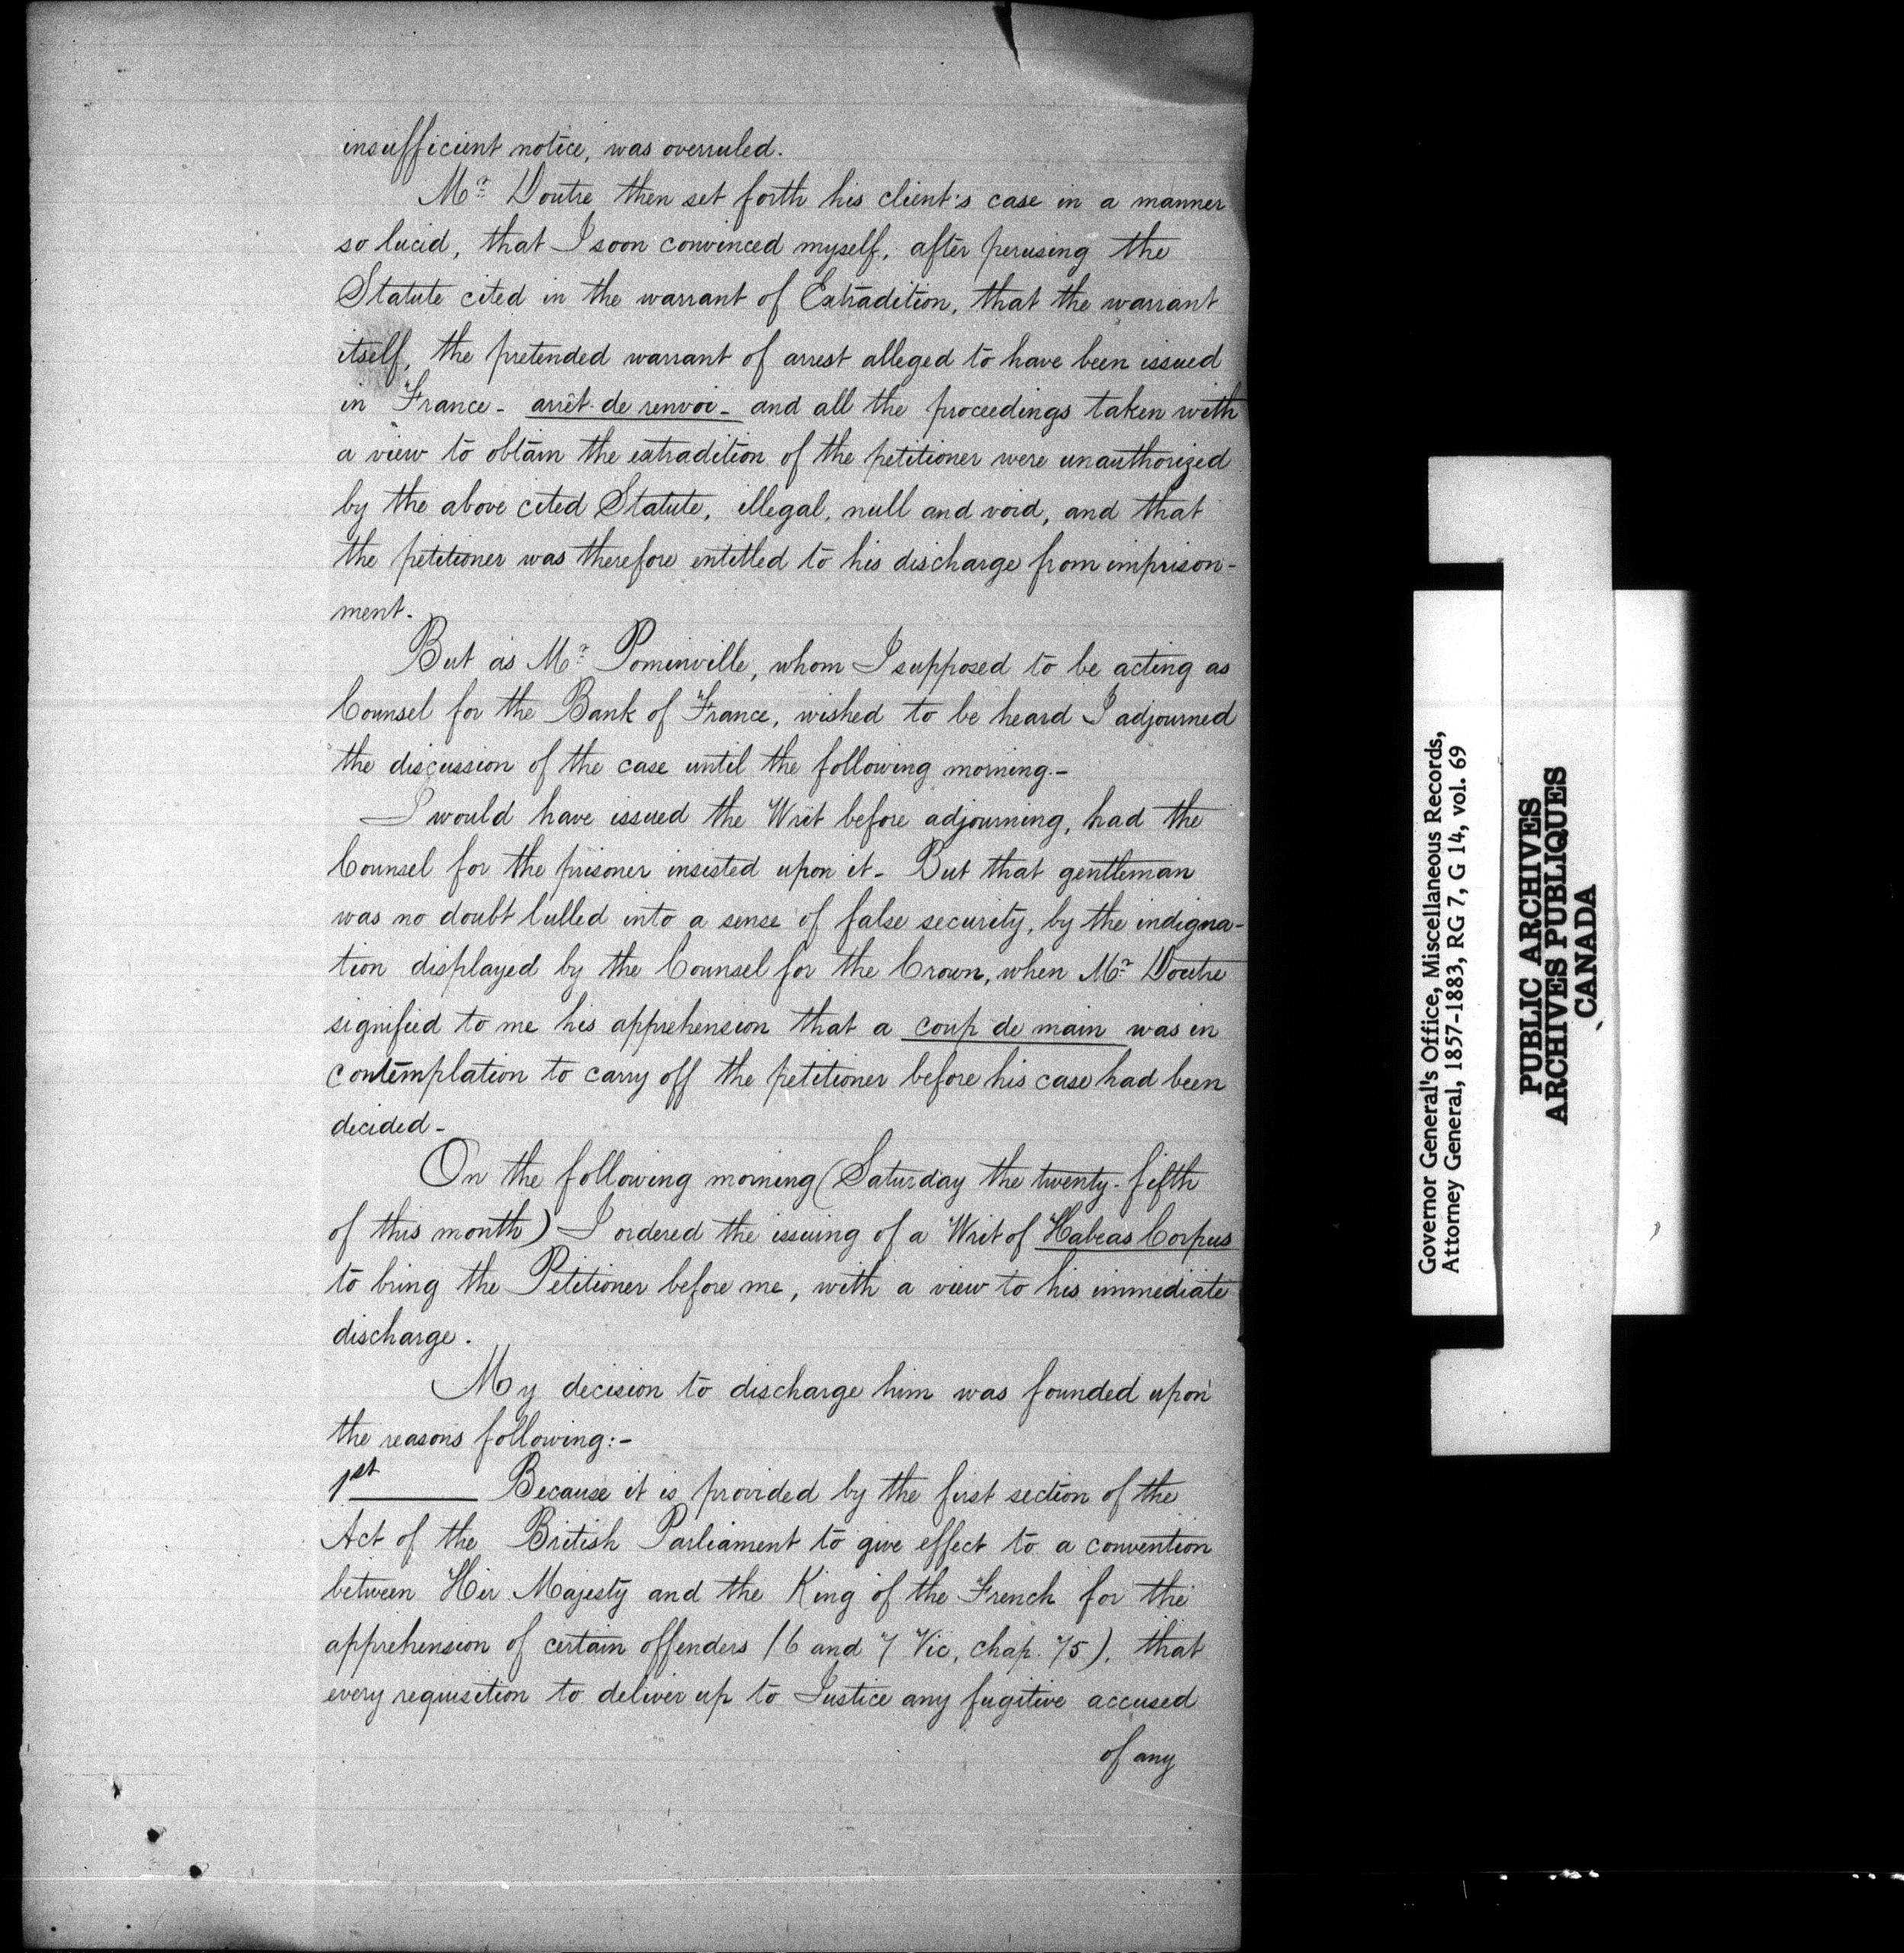 insufficient notice, was overruled.
Mr Doutre then set forth his client's case in a manner
so lucid, that I soon convinced myself, after perusing the
Statute cited in the warrant of Extradition, that the warrant
itself, the pretended warrant of arrest alleged to have been issued
in France - arrêt de renvoi - and all the proceedings taken with
a view to obtain the extradition of the petitioner were unauthorized
by the above cited Statute, illegal, null and void, and that
the petitioner was therefore entitled to his discharge from imprison-
ment.
But as Mr Pominville, whom I supposed to be acting as
Counsel for the Bank of France, wished to be heard I adjourned
the discussion of the case until the following morning.-
I would have issued the Writ before adjourning, had the
Counsel for the prisoner insisted upon it - But that gentleman
was no doubt lulled into a sense of false security, by the indigna-
tion displayed by the Counsel for the Crown, when Mr Doutre
signified to me his apprehension that a coup de main was in
contemplation to carry off the petitioner before his case had been
decided -
On the following morning (Saturday the twenty-fifth
of this month) I ordered the issuing of a Writ of Habeas Corpus
to bring the Petitioner before me, with a view to his immediate
discharge.
My decision to discharge him was founded upon
the reasons following:-
1st Because it is provided by the first section of the
Act of the British Parliament to give effect to a convention
between Her Majesty and the King of the French for the
apprehension of certain offenders (6 and 7 Vic, chap. 75), that
every requisition to deliver up to Justice any fugitive accused
of any
Governor General's Office, Miscellaneous Records,
Attorney General, 1857-1883, RG 7, G 14, vol. 69
PUBLIC ARCHIVES
ARCHIVES PUBLIQUES
CANADA